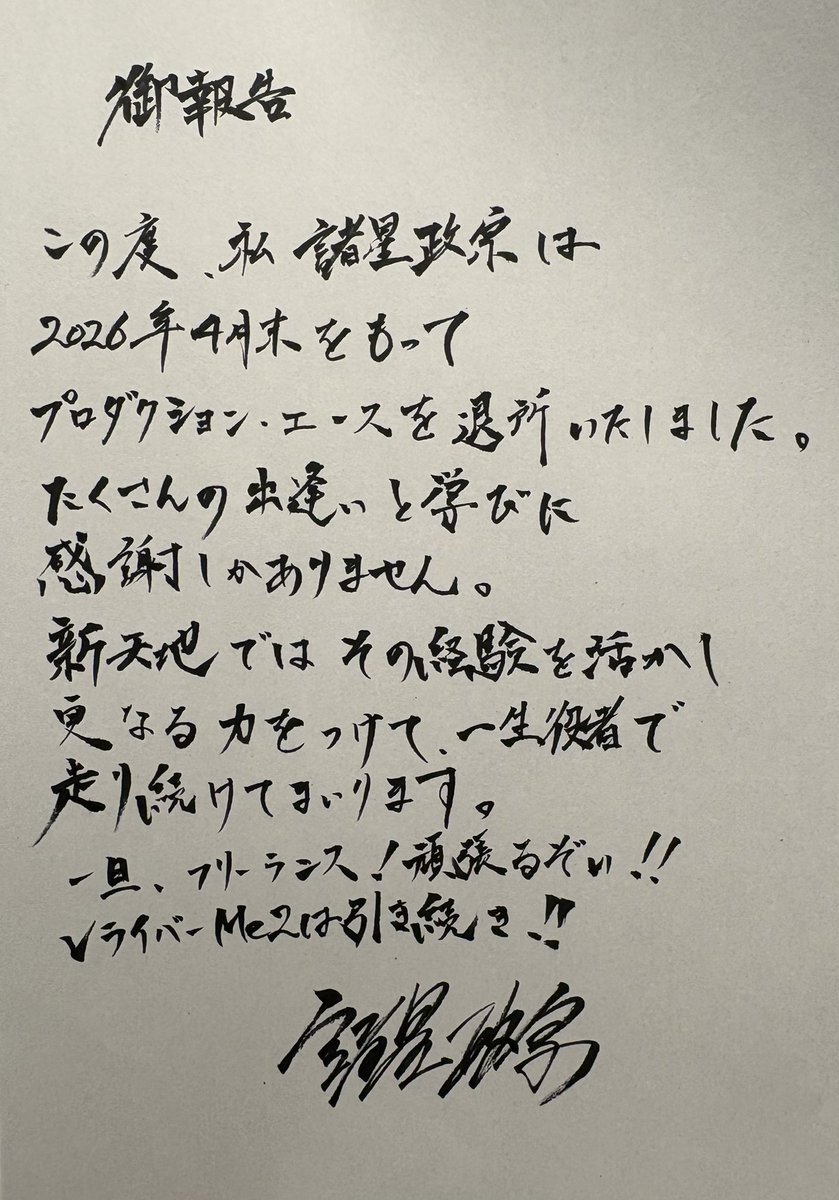 御報告
この度、私 諸星政宗は
2026年4月末をもって
プロダクション・エースを退所いたしました。
たくさんの出逢いと学びに
感謝しかありません。
新天地では その経験を活かし
更なる力をつけて、一生役者で
走り続けてまいります。
一旦、フリーランス!頑張るぞい!!
VライバーMe2は引き続き!!
諸星政宗